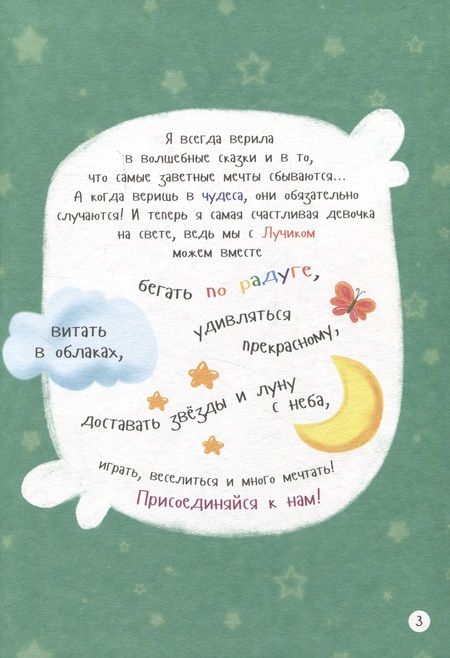 Я всегда верила
в волшебные сказки и в то,
что самые заветные мечты сбываются...
А когда веришь в чудеса, они обязательно
случаются! И теперь я самая счастливая девочка
на свете, ведь мы с Лучиком
можем вместе
бегать по радуге,
витать
в облаках,
удивляться
прекрасному,
доставать звёзды и луну
с неба,
играть, веселиться и много мечтать!
Присоединяйся к нам!
3